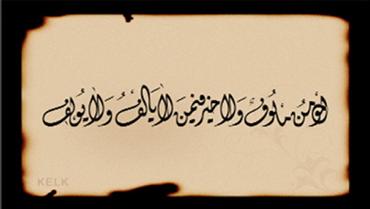 المؤمن مألوف ولا خير فيمن لا يألف ولا يؤلف
KELK